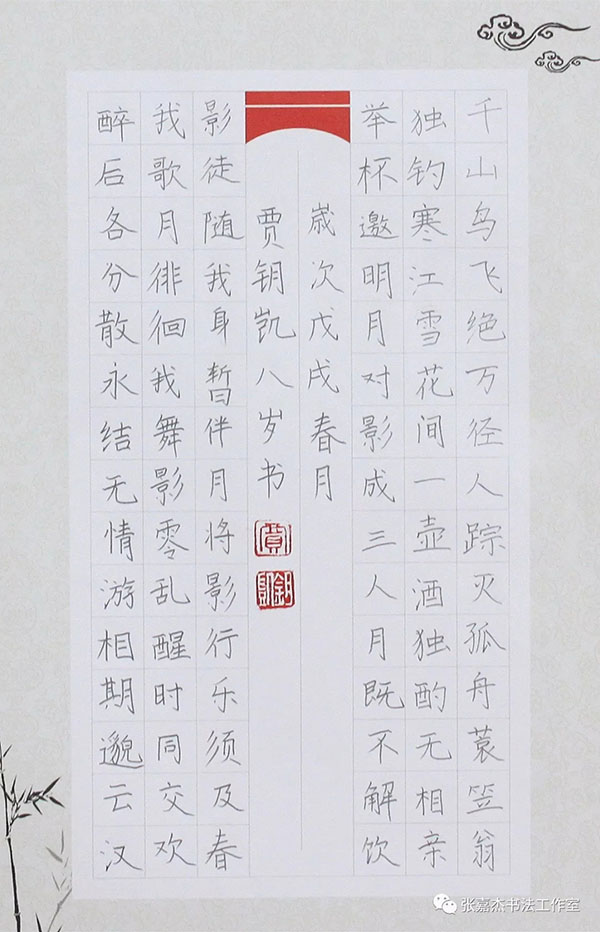 千山鸟飞绝万径人踪灭孤舟蓑笠翁
独钓寒江雪花间一壶酒独酌无相亲
举杯邀明月对影成三人月既不解饮
歳次戊戌春月
贾钥凯八岁书
影徒随我身暂伴月将影行乐须及春
我歌月徘徊我舞影零乱醒时同交欢
醉后各分散永结无情游相期邈云汉
张嘉杰书法工作室